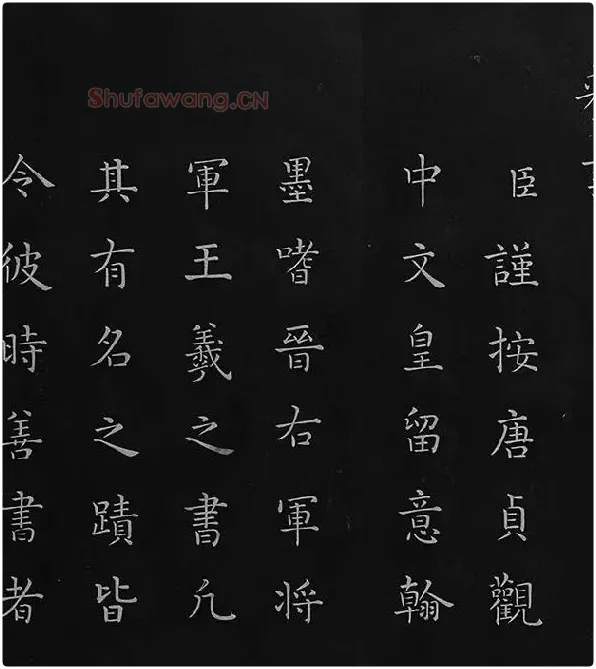 Shufawang.CN
臣謹按唐貞觀
中文皇留意翰
墨嗜晉右軍将
軍王羲之書凢
其有名之蹟皆
令彼時善書者